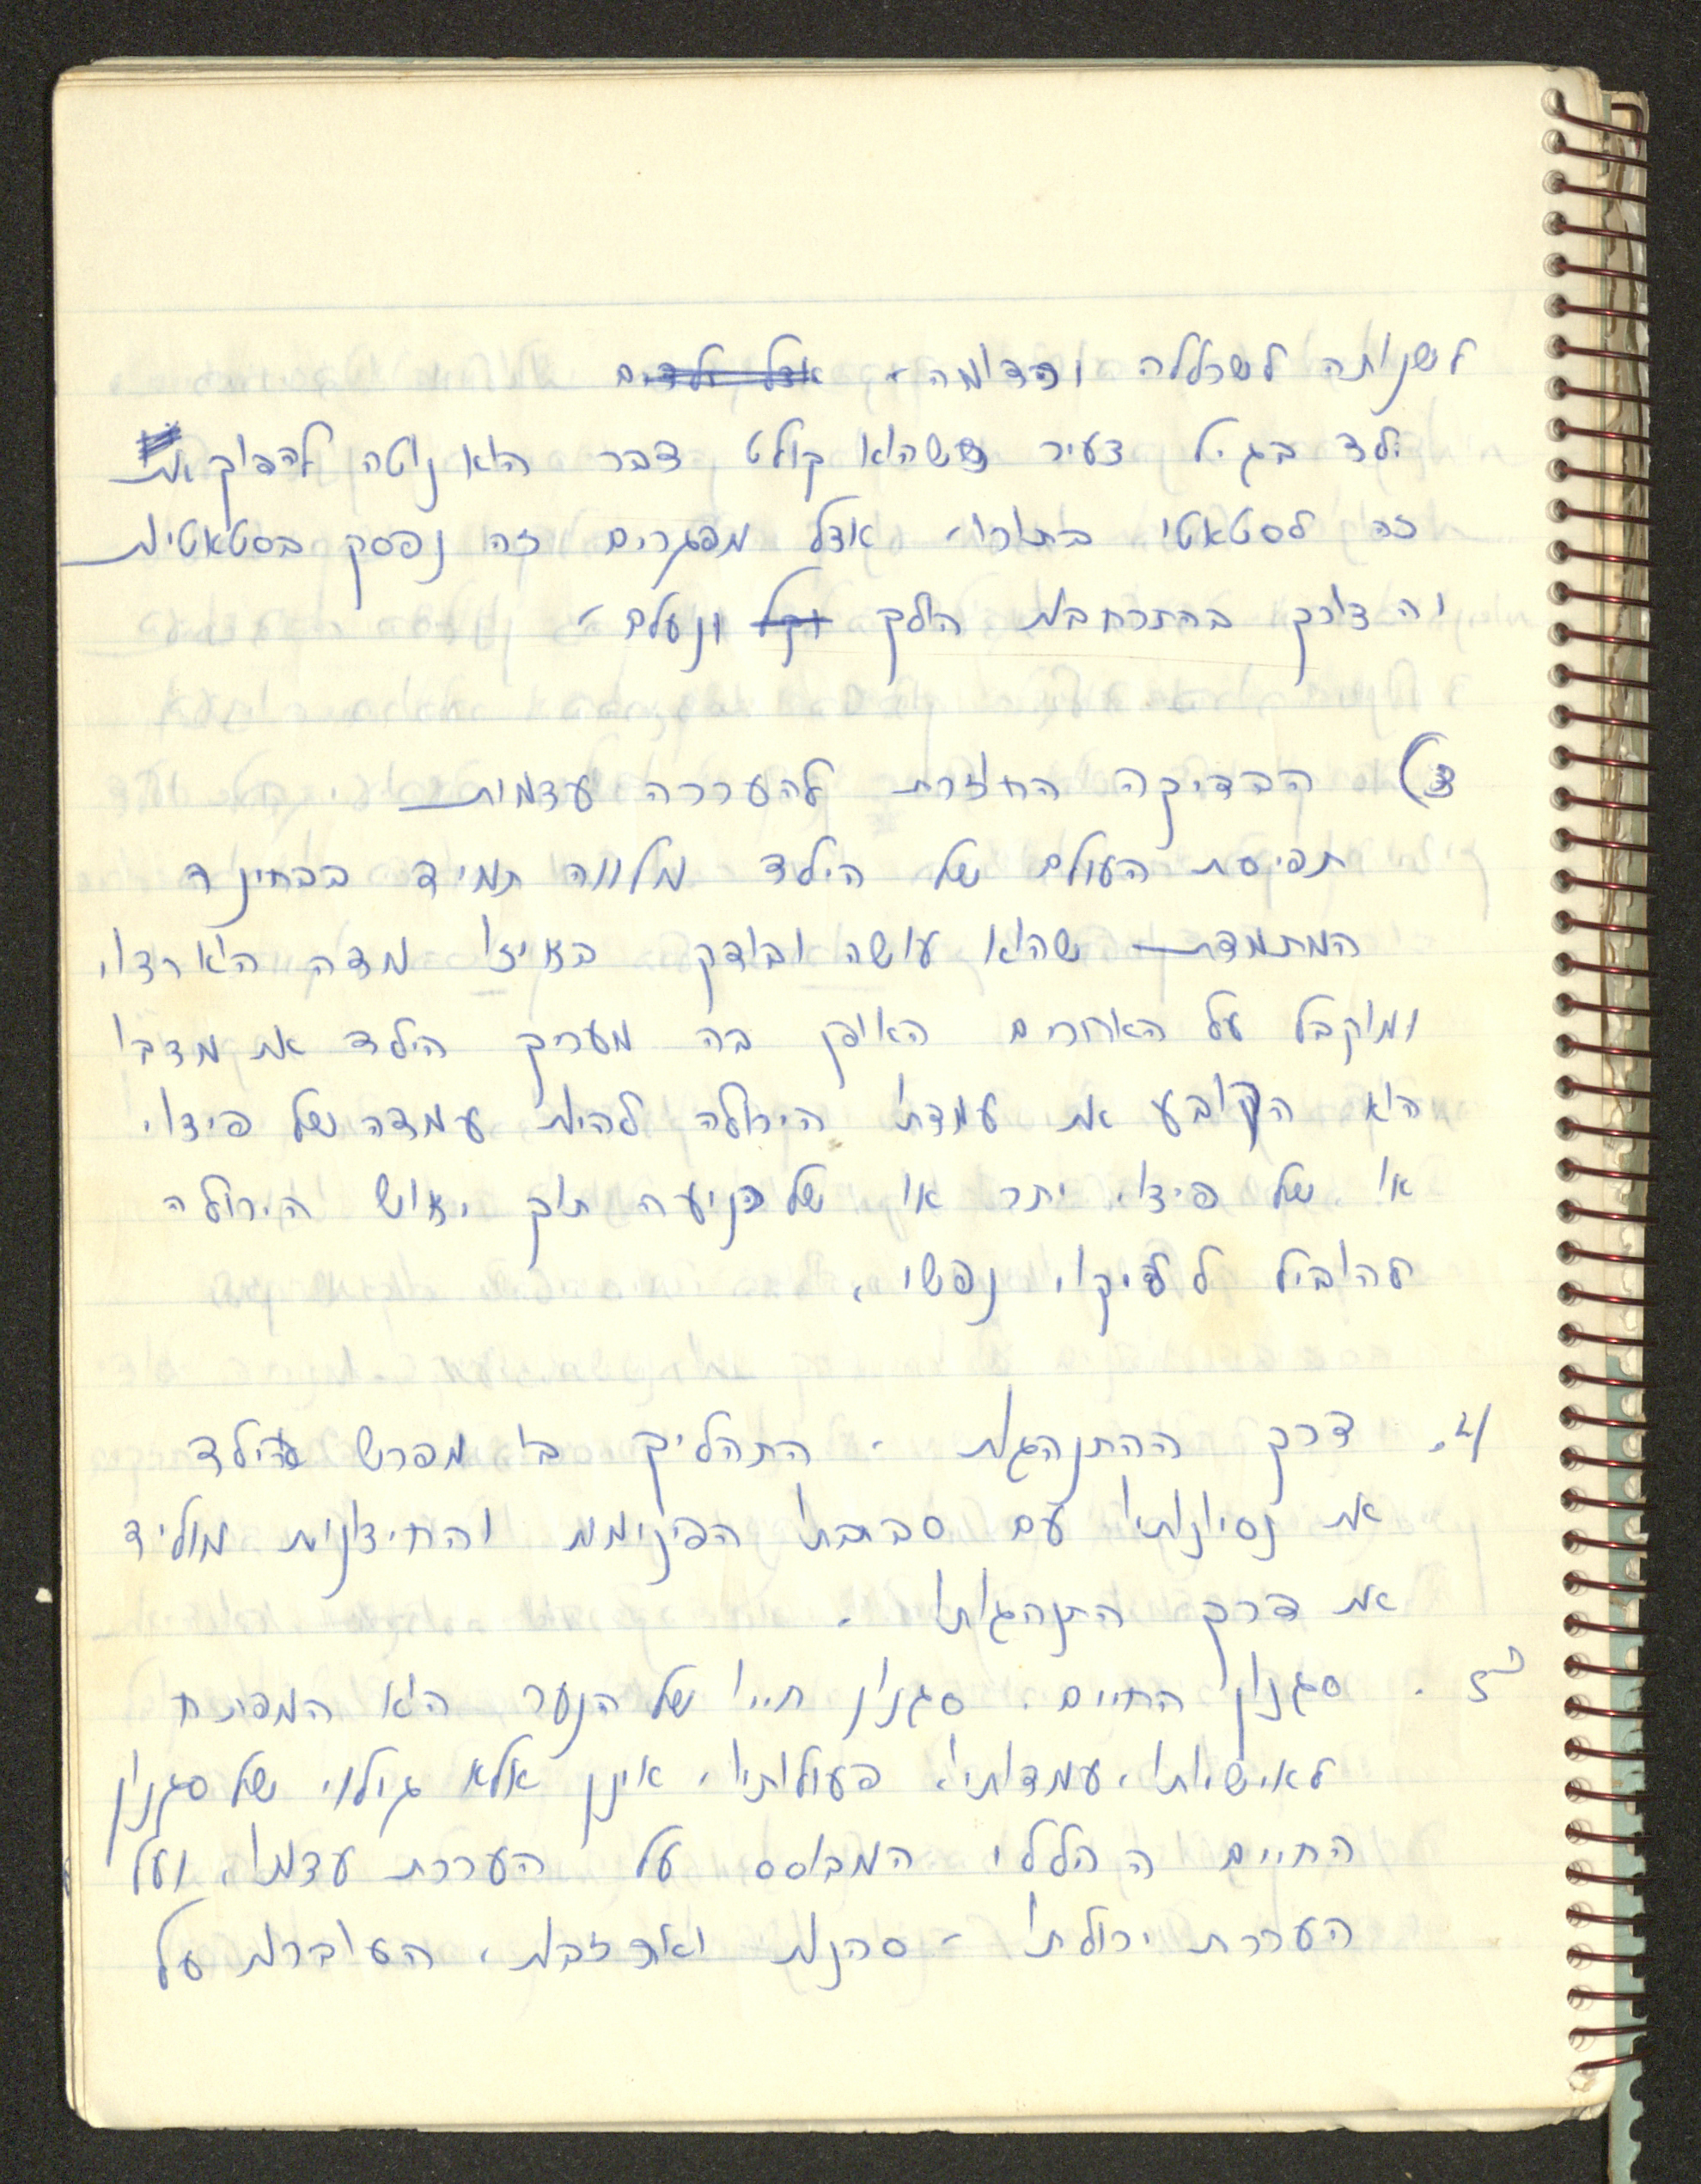 לשנותה לשכללה וכדומה. אצל ילדים
ילד בגיל צעיר כשהוא קולט דבר הוא נוטה להפוך את
זה לסטאטי ביתורו, אצל מפגרים זה נפסק בסטאטיות
והצורך בהתרחבות הולך וקל ונעלם.
3) הבדיקה החוזרת להערכה עצמות
תפיסת העולם של הילד מלווה תמיד בבחינה
המתמדת שהוא עושה ובודק באיזו מדה הוא רצוי
ומקובל על האחרים האופן בה מעריך הילד את מצבו
הוא הקובע את עמדתו היכולה להיות עמדה של פיצוי
או של פיצוי יתר או של כניעה תוך יאוש היכולה
להוביל לליקוי נפשי.
4. דרך ההתנהגות. התהליך בו מפרש הילד
את נסיונותיו עם סביבתו הפנימית והחיצונית מוליד
את דרך התנהגותו.
5. סגנון החיים. סגנון חייו של הנער הוא המפתח
לאישיותו, עמדותיו, פעולותיו, אינן אלא גילוי של סגנון
החיים הכללי המבוסס על הערכת עצמו, ועל
הערכת יכולתו - סכנות ואכזבות, העוברות על